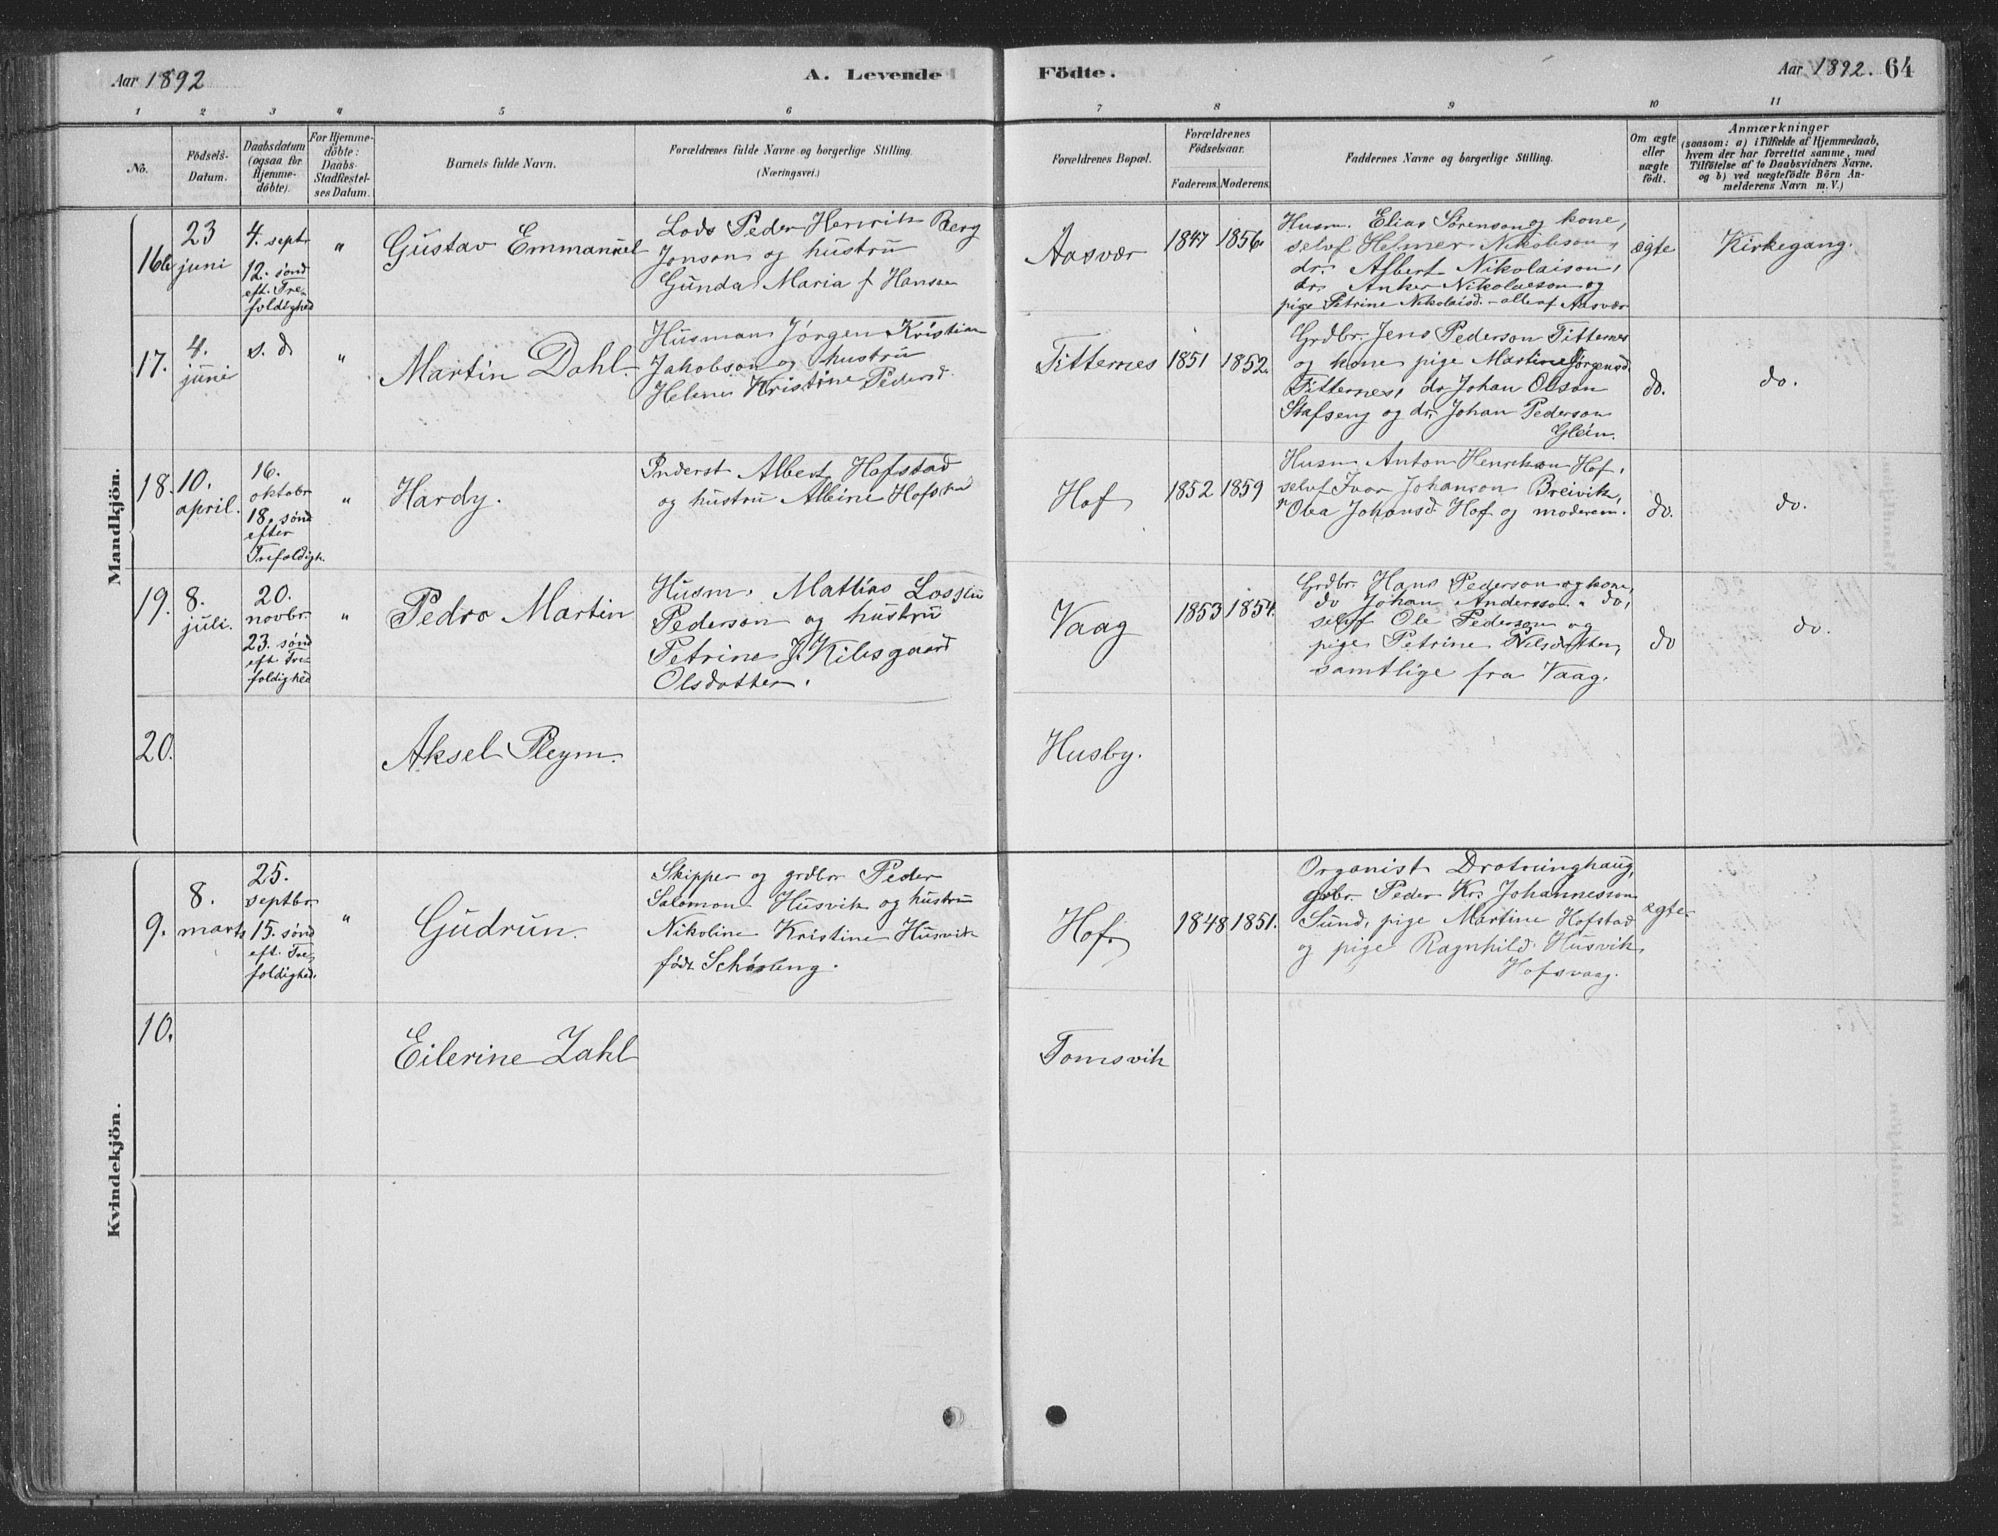 Aar 1892
A. Levende
Födte.
Aar 1892. 64
1 2 3 4 5 6 7 8 9 10 11
No.
Födsels-
Datum.
Daabsdatum
(ogsaa for
Hjemme-
döbte).
For Hjemme-
döbte:
Daabs-
Stadfæstel-
ses Datum.
Barnets fulde Navn.
Forældrenes fulde Navne og borgerlige Stilling.
(Næringsvei.)
Forældrenes Bopæl.
Forældrenes
Födselsaar.
Faderens. Moderens.
Faddernes Navne og borgerlige Stilling.
Om ægte
eller
uægte
födt.
Anmærkninger
(saasom: a) i Tilfælde af Hjemmedaab,
hvem der har forrettet samme, med
Tilföielse af to Daabsvidners Navne,
og b) ved uægtefödte Börn An-
melderens Navn m. V.)
Mandkjön.
16
23
juni
4. septr
12. sønd
eft. Tre-
foldighed
"
Gustav Emmanuel
Lods Peder Henrik Berg
Jonson og hustru
Gunda Maria f Hansen
Aasvær
1847 1856
Husm. Elias Sørenson og kone,
selvf Helmer Nikolaison,
dr. Albert Nikolaison,
dr. Anker Nikolaeson og
pige Petrine Nikolaisd. - alle af Aasvær
ægte
Kirkegang.
17.
4.
juni
s. d
"
Martin Dahl.
Husman Jørgen Kristian
Jakobson og hustru
Helene Kristine Pedersd.
Titternes
1851 1852.
Grdbr. Jens Pederson Titternes
og kone pige Martine Jørgensd.
Titternes, do Johan Olson
Stafseng og dr. Johan Pederson
Glein.
do.
do.
18.
10.
april.
16.
oktobr
18. sønd
efter
Trefoldigh.
"
Hardy.
Inderst Albert Hofstad
og hustru Albine Hofstad
Hof
1852 1859
Husm Anton Henrikson Hof,
selvf Ivar Johanson Breivik,
Olea Johansd. Hof og moderen.
do.
do.
19.
8.
juli.
20.
novbr.
23. sønd
eft Tre-
foldighed
"
Pedro Martin
Husm. Mathias
Pederson og hustru
Petrine J. Kilsgaard
Olsdotter.
Vaag
1853 1854.
Grdbr. Hans Pederson og kone,
do Johan Anderson " do,
selvf Ole Pederson og
pige Petrine Nilsdotter,
samtlige fra Vaag.
do
do.
20.
Aksel Pleym.
Husby.
Kvindekjön.
9.
8.
marts
25.
septbr.
15. sønd
eft. Tre-
foldighed.
"
Gudrun.
Skipper og grdbr Peder
Salomon Husvik og hustru
Nikoline Kristine Husvik
født Schjøleng.
Hof.
1848 1851.
Organist Drotninghaug,
grbr. Peder Kr. Johannesson
Sund, pige Martine Hofstad
og pige Ragnhild Husvik
Hofsvaag.
ægte.
10.
Eilerine Zahl
Tomsvik